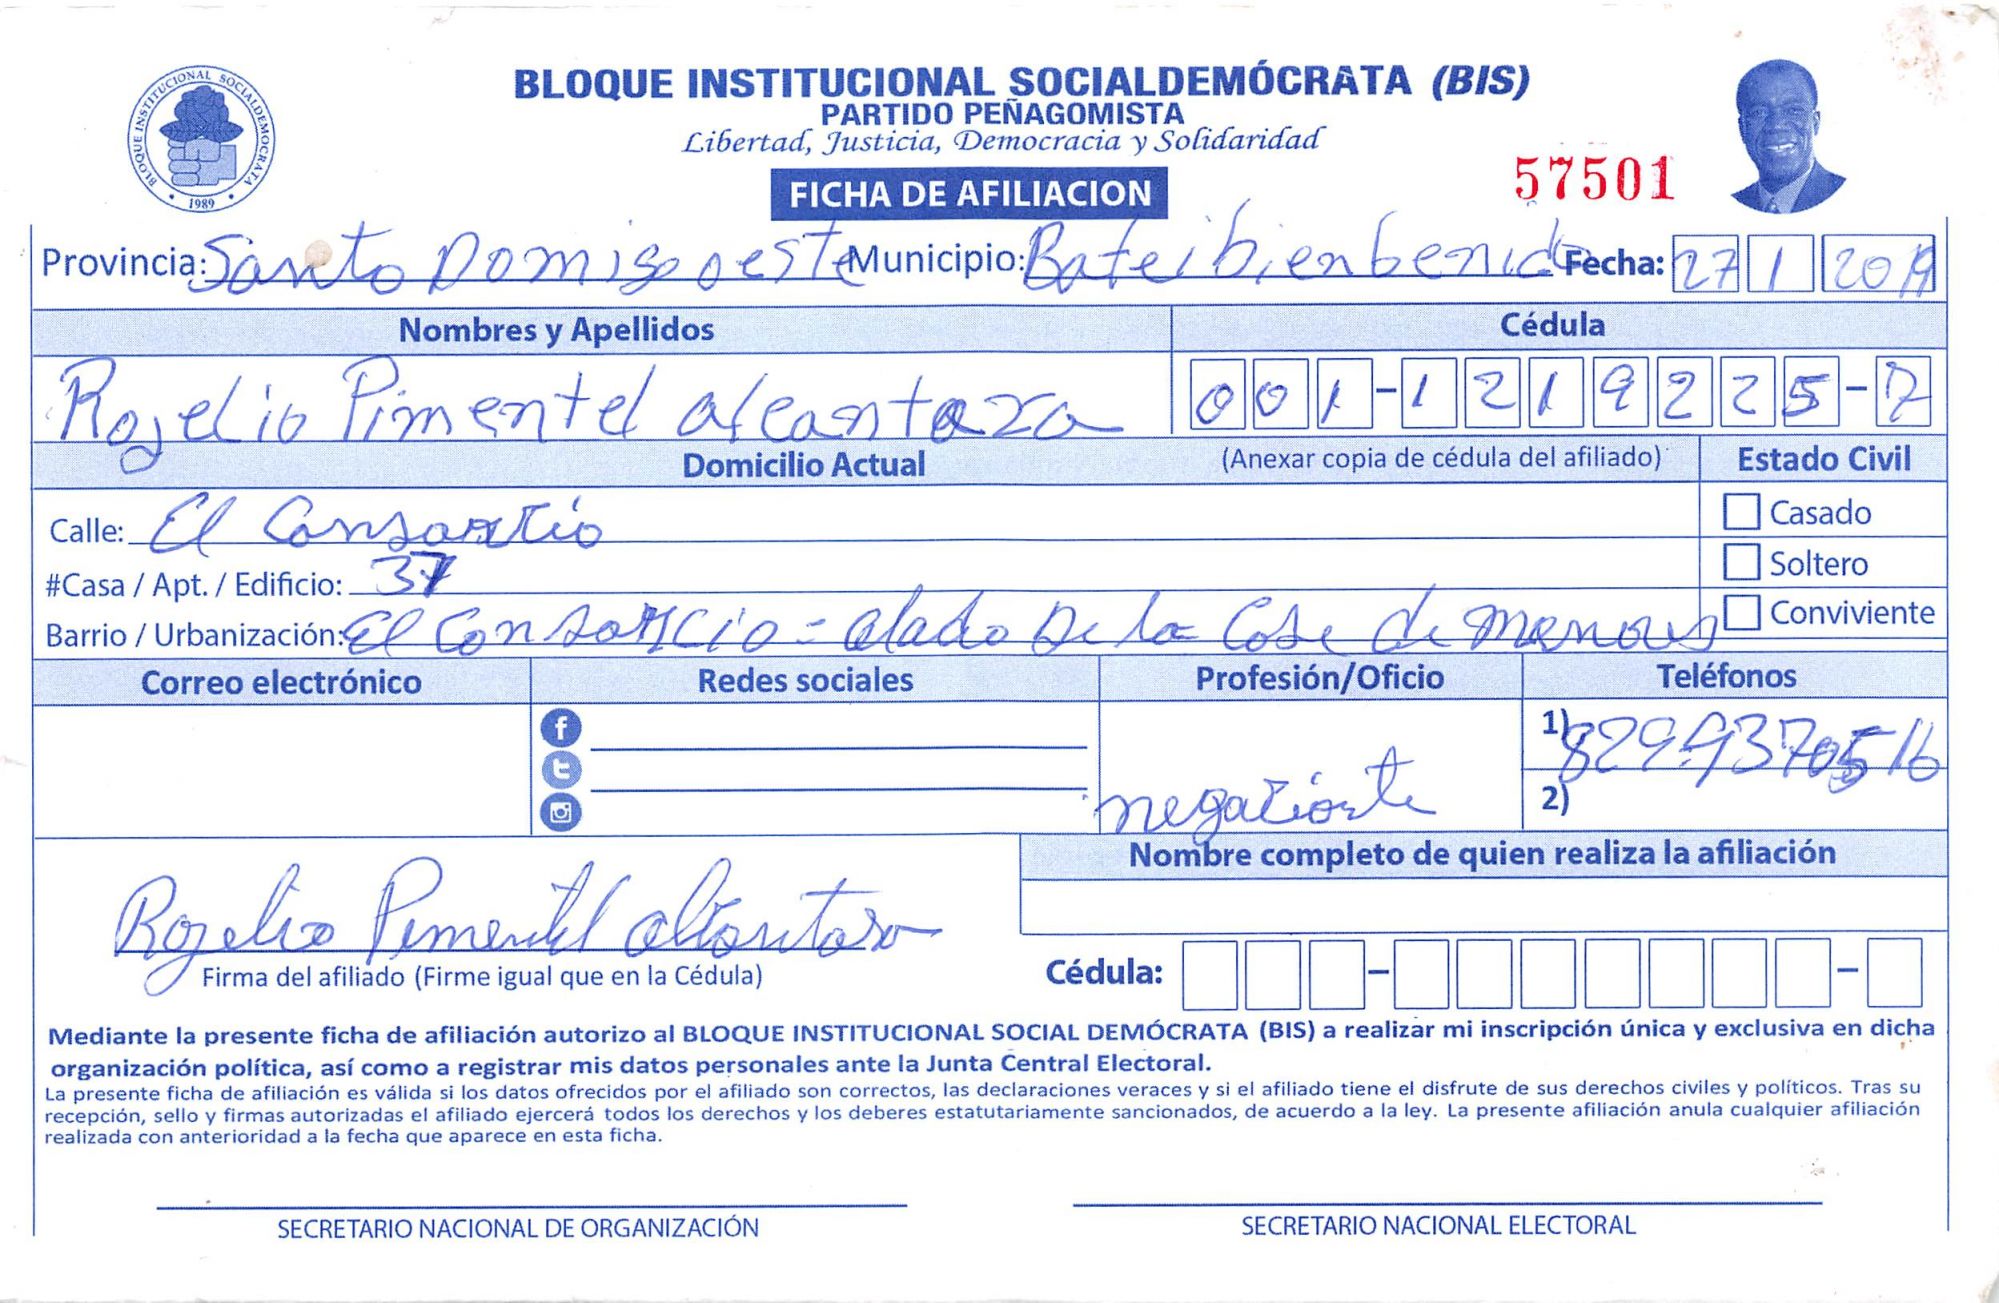 BLOQUE INSTITUCIONAL SOCIALDEMOCRATA
1989
BLOQUE INSTITUCIONAL SOCIALDEMÓCRATA (BIS)
PARTIDO PEÑAGOMISTA
Libertad, Justicia, Democracia y Solidaridad
FICHA DE AFILIACION
57501
Provincia: Santo Domigo oeste Municipio: Batei bienbenido Fecha: 27 1 2019
Nombres y Apellidos Cédula
Rogelio Pimentel alcantara 001-1219225-7
Domicilio Actual (Anexar copia de cédula del afiliado) Estado Civil
Calle: El Consorcio Casado
#Casa / Apt. / Edificio: 37 Soltero
Barrio / Urbanización: El Consorcio - alado De la Conviviente
Correo electrónico Redes sociales Profesión/Oficio Teléfonos
1) 829-9370516
negocionte
2)
Nombre completo de quien realiza la afiliación
Rogelio Pimentel alcantara
Firma del afiliado (Firme igual que en la Cédula) Cédula: - -
Mediante la presente ficha de afiliación autorizo al BLOQUE INSTITUCIONAL SOCIAL DEMÓCRATA (BIS) a realizar mi inscripción única y exclusiva en dicha
organización política, así como a registrar mis datos personales ante la Junta Central Electoral.
La presente ficha de afiliación es válida si los datos ofrecidos por el afiliado son correctos, las declaraciones veraces y si el afiliado tiene el disfrute de sus derechos civiles y políticos. Tras su
recepción, sello y firmas autorizadas el afiliado ejercerá todos los derechos y los deberes estatutariamente sancionados, de acuerdo a la ley. La presente afiliación anula cualquier afiliación
realizada con anterioridad a la fecha que aparece en esta ficha.
SECRETARIO NACIONAL DE ORGANIZACIÓN SECRETARIO NACIONAL ELECTORAL